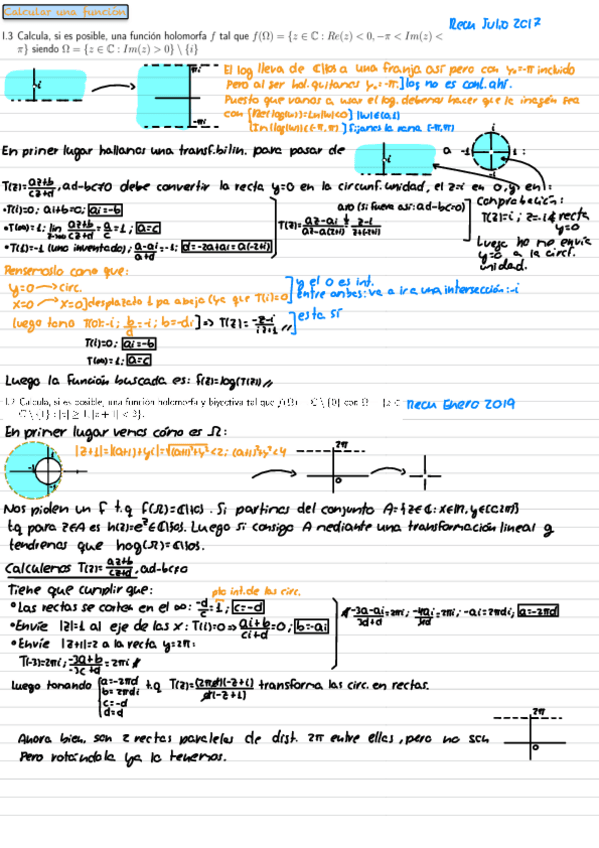 Calcular una función
Recu Julio 2017
I.3 Calcula, si es posible, una función holomorfa f tal que f(Ω) = {z ∈ ℂ : Re(z) < 0, −π < Im(z) <
π} siendo Ω = {z ∈ ℂ : Im(z) > 0} \ {i}
El log lleva de ℂ\{0} a una franja así pero con y₀=-π incluido
Pero al ser hol. quitamos y₀=-π.] log no es cont. ahí.
Puesto que vamos a usar el log. debemos hacer que la imagen sea
con {Re(log(w))=Ln|w|<0] |w|∈(0,1)
Im(log(w))∈(-π,π) ] Fijamos la rama [-π,π)
En primer lugar hallamos una transf. bilin. para pasar de
a
T(z)=az+b/cz+d, ad-bc≠0 debe convertir la recta y=0 en la circunf. unidad, el z=i en 0, y en 1:
•T(i)=0; ai+b=0; ai=-b
•T(∞)=1; lim az+b/cz+d = a/c = 1; a=c
•T(1)=-1 (uno inventado); a-ai/a+d=-1; d=-2a+ai=a(-2+i)
a≠0 (si fuera así: ad-bc=0)
Comprobación:
T(z)=i; z=-1+i ∉ recta
y=0
Luego no me envíe
y=0 a la circf.
unidad.
Pensémoslo como que:
y=0 → circ.
x=0 → x=0] desplazato 1 pa abajo (ya que T(i)=0)
y el 0 es int.
entre ambas: va a ir a una intersección: -i
luego tomo T(0)=-i; b/d=-i; b=-di ] => T(z)=
esta sí
T(i)=0; ai=-b
T(∞)=1; a=c
Luego la función buscada es: f(z)=log(T(z))//
I.2 Calcula, si es posible, una función holomorfa y biyectiva tal que f(Ω) = ℂ \ {0} con Ω = {z ∈
ℂ \ {1} : |z| ≥ 1, |z + 1| < 2}.
Recu Enero 2019
En primer lugar vemos cómo es Ω:
|z+1|=|(x+1)+yi|=√(x+1)²+y² <2; (x+1)²+y²<4
Nos piden un f t.q f(Ω)=ℂ\{0}. Si partimos del conjunto A={z∈ℂ: x∈ℝ, y∈[0,2π)}
tq para z∈A es h(z)=e^z∈ℂ\{0}. Luego si consigo A mediante una transformación lineal g
tendremos que hog(Ω)=ℂ\{0}.
Calculemos T(z)=az+b/cz+d, ad-bc≠0
Tiene que cumplir que:
pto int. de las circ.
•Las rectas se corten en el ∞: -d/c=1; c=-d
•Envíe |z|=1 al eje de las x: T(i)=0 => ai+b/ci+d=0; b=-ai
•Envíe |z+1|=2 a la recta y=2π:
T(-3)=2πi; -3a+b/-3c+d=2πi
-3a-ai/3d+d=2πi; -4ai/4d=2πi; -ai=2πdi; a=-2πd
luego tomando {a=-2πd
b=2πdi
c=-d
d=d
t.q T(z)=(2πd)(-z+i)/d(-z+1) transforma las circ. en rectas.
Ahora bien, son 2 rectas paralelas de dist. 2π entre ellas, pero no son
Pero rotándola ya la tenemos.